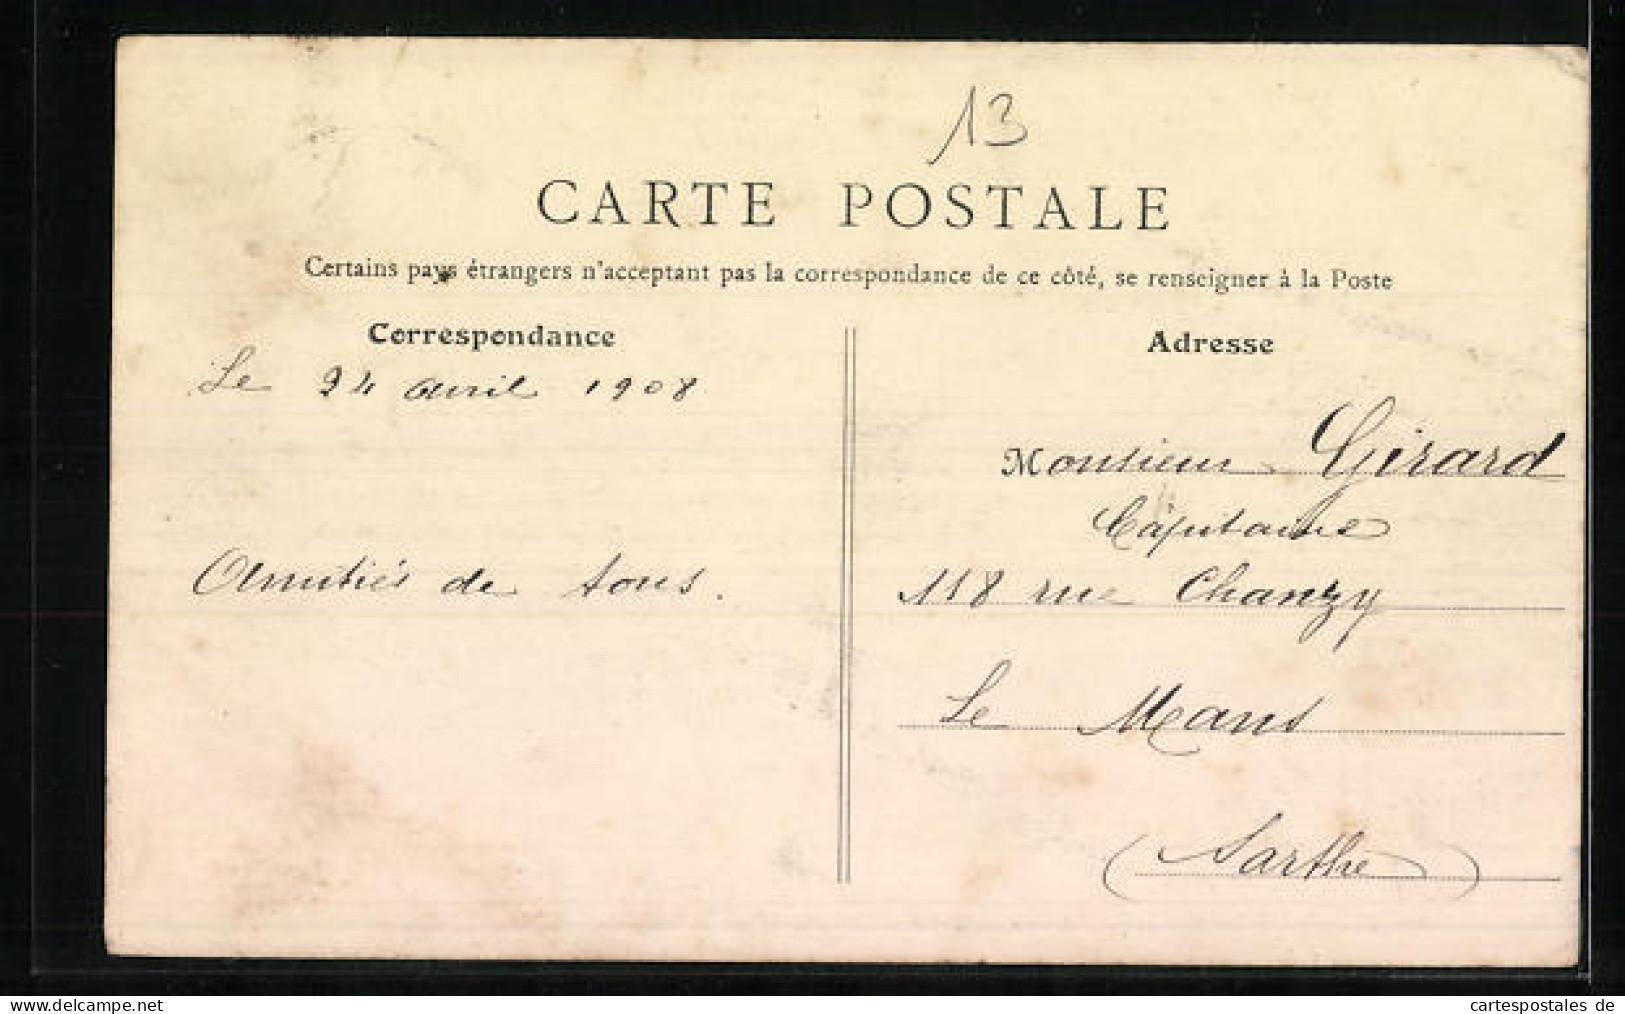 13
CARTE POSTALE
Certains pays étrangers n'acceptant pas la correspondance de ce côté, se renseigner à la Poste
Correspondance
Le 24 avril 1908
Amitiés de tous.
Adresse
Monsieur Girard
Capitaine
118 rue Chanzy
Le Mans
(Sarthe)
www.delcampe.net
cartespostales de